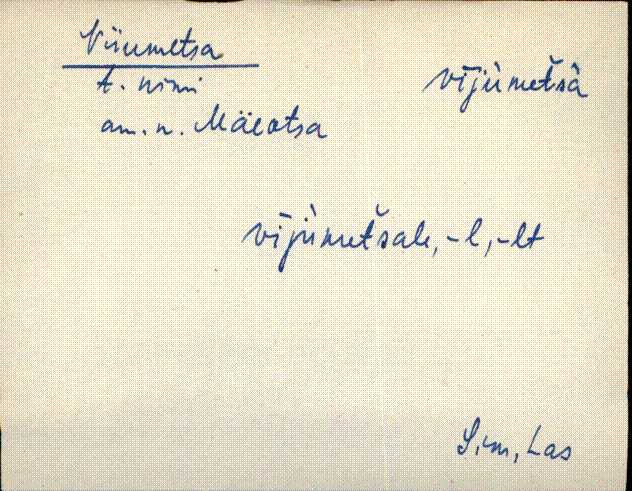 Viiumetsa
t. nimi
am. n. Mäeotsa
vījùmetšà
vījùmetšale, -l, -lt
Sim, Las